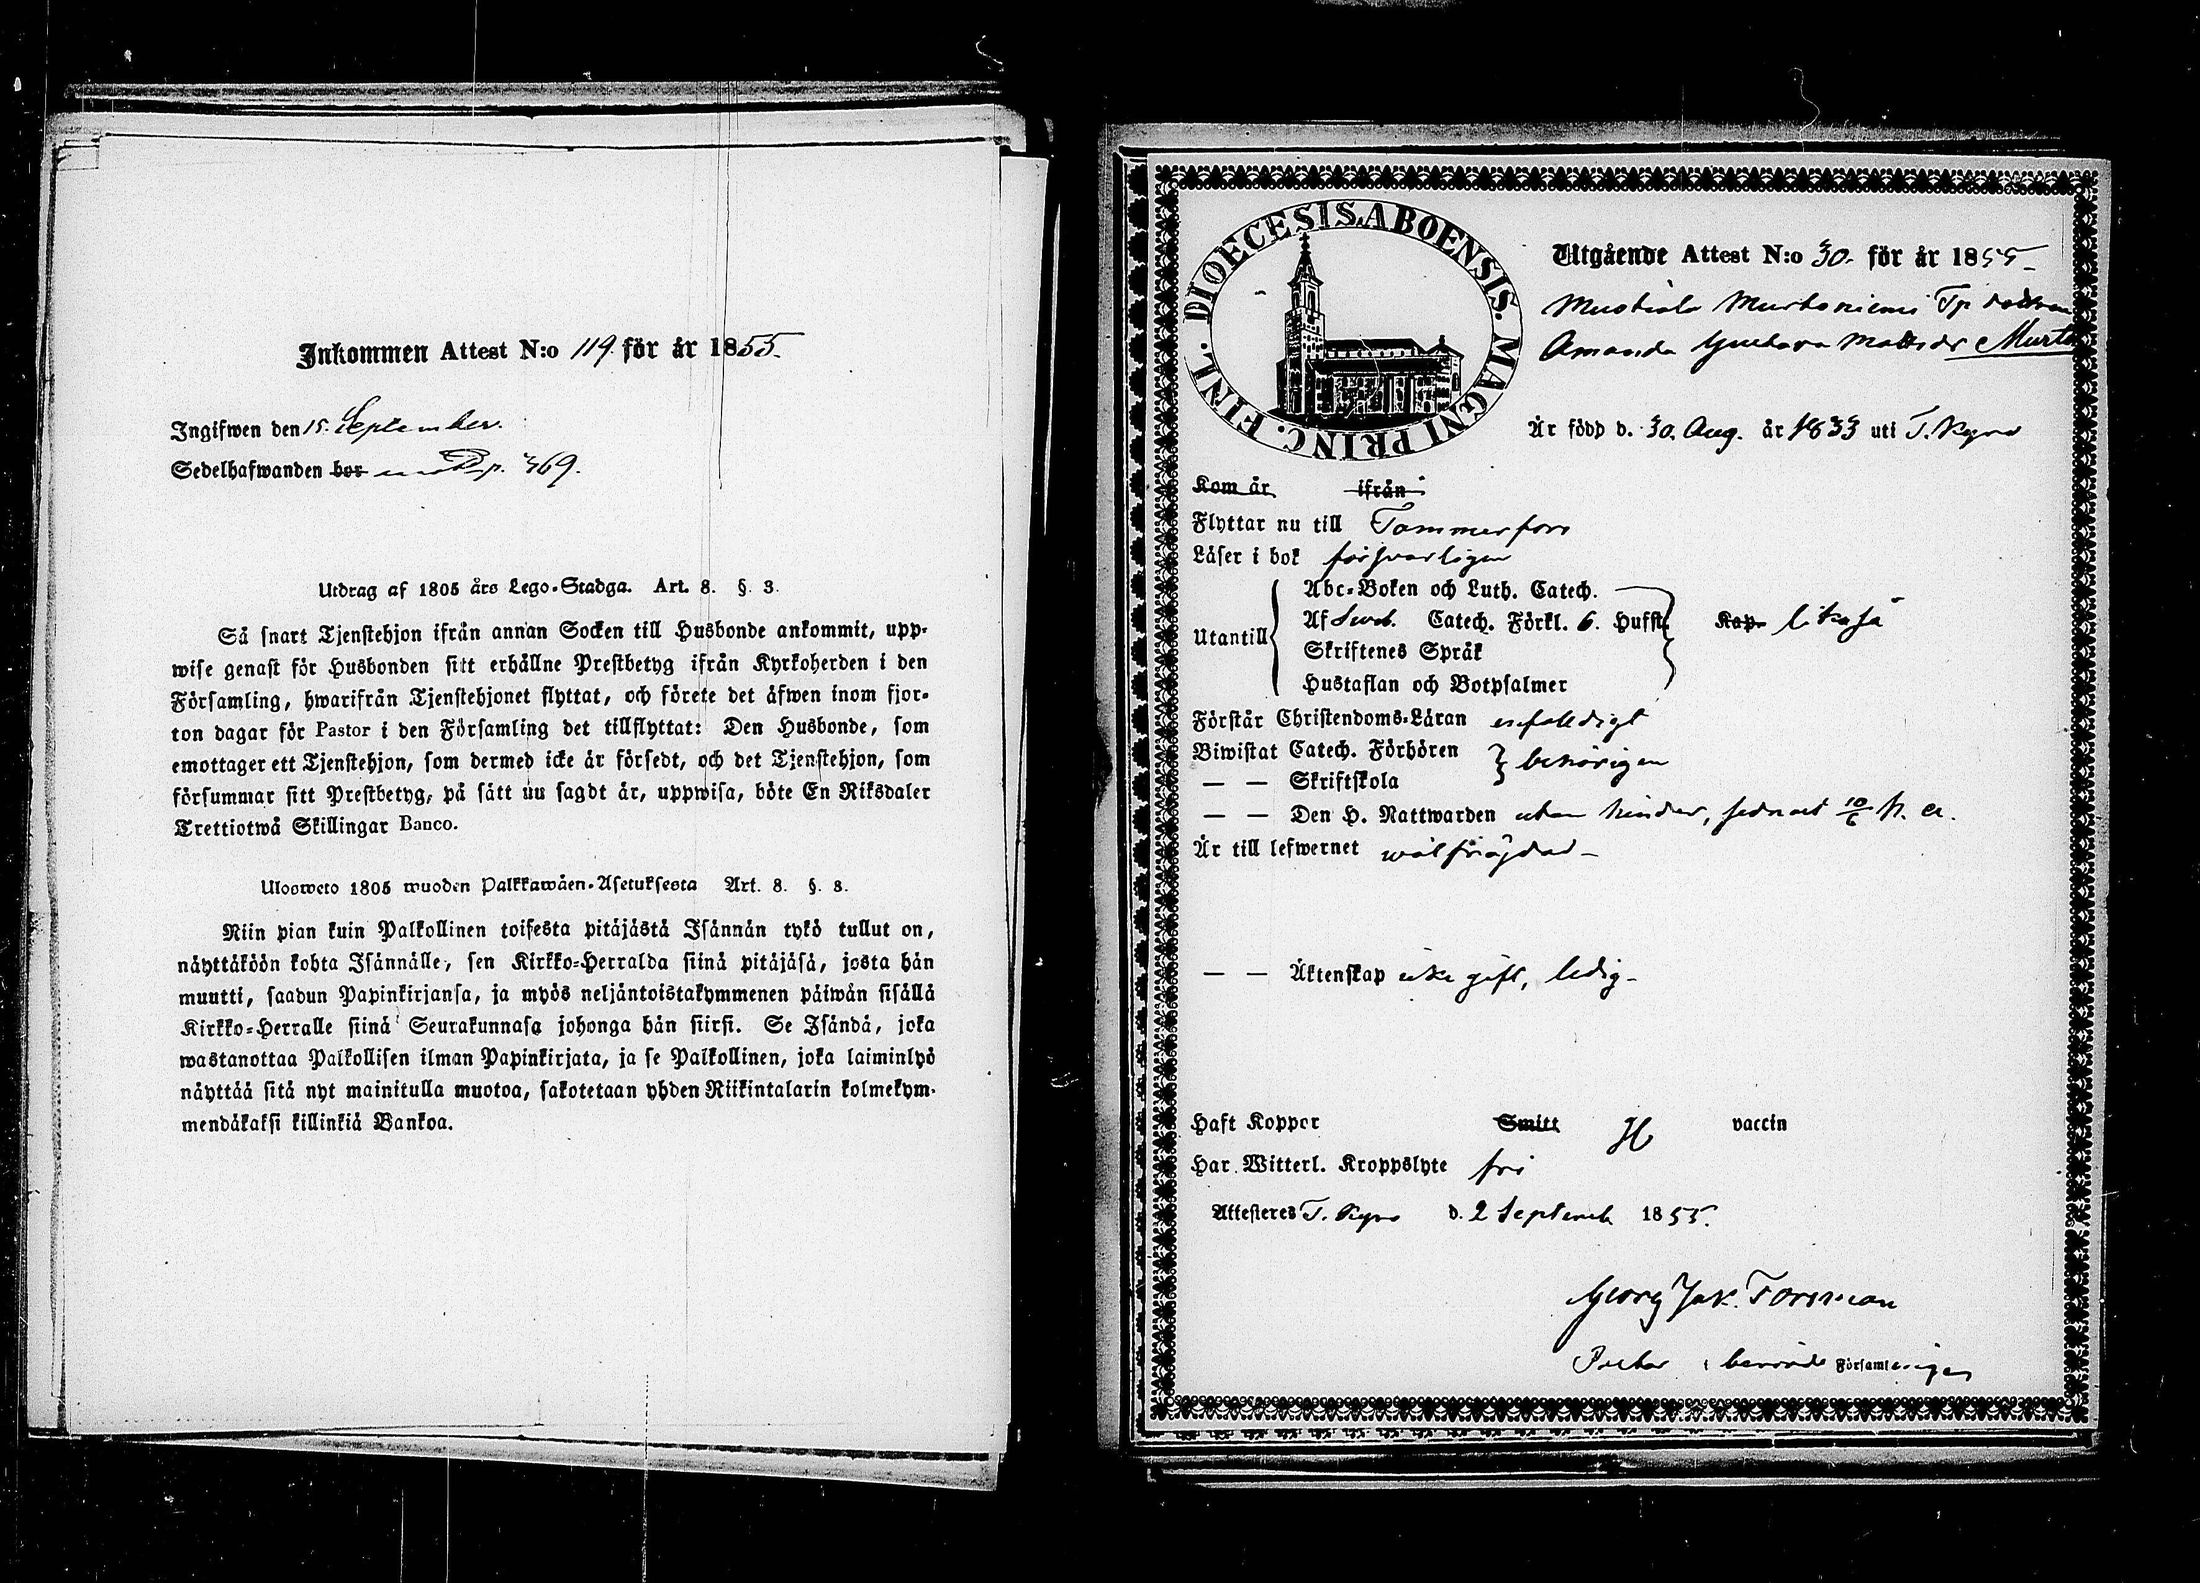 Inkommen Attest N:o 119. för år 1855.
Ingifwen den 15. September.
Sedelhafwanden bor p. 469.
Utdrag af 1805 års Lego-Stadga. Art. 8. §. 3.
Så snart Tjenstehjon ifrån annan Socken till Husbonde ankommit, upp-
wise genast för Husbonden sitt erhållne Prestbetyg ifrån Kyrkoherden i den
Församling, hwarifrån Tjenstehjonet flyttat, och förete det äfwen inom fjor-
ton dagar för Pastor i den Församling det tillflyttat: Den Husbonde, som
emottager ett Tjenstehjon, som dermed icke är försedt, och det Tjenstehjon, som
försummar sitt Prestbetyg, på sätt nu sagdt är, uppwisa, böte En Riksdaler
Trettiotwå Skillingar Banco.
Ulosweto 1805 wuoden Palkkawäen-Asetuksesta Art. 8. §. 3.
Niin pian kuin Palkollinen toisesta pitäjästä Isännän tykö tullut on,
näyttäköön kohta Isännälle, sen Kirkko-Herralda siinä pitäjäsä, josta hän
muutti, saadun Papinkirjansa, ja myös neljäntoistakymmenen päiwän sisällä
Kirkko-Herralle siinä Seurakunnasa johonga hän siirsi. Se Isändä, joka
wastanottaa Palkollisen ilman Papinkirjata, ja se Palkollinen, joka laiminlyö
näyttää sitä nyt mainitulla muotoa, sakotetaan yhden Riikintalarin kolmekym-
mendäkaksi killinkiä Bankoa.
DIOECESIS ABOENSIS. MAGNI PRINC. FINL.
Utgående Attest N:o 30. för år 1855
Mustiala Murtoniemi Tp dottren
Amanda Gustava Mattsdr Murto
Är född d. 30. Aug. år 1833 uti T. Kyro
Kom år ifrån
Flyttar nu till Tammerfors
Läser i bok försvarligen
Utantill
Abc-Boken och Luth. Catech.
Af Sweb. Catech. Förkl. 6. Hufst. Kap. likaså
Skriftenes Språk
Hustaflan och Botpsalmer
Förstår Christendoms-Läran enfaldigt
Biwistat Catech. Förhören behörigen
— — Skriftskola
— — Den H. Nattwarden utan hinder, sednast 10/6 h. a.
Är till lefwernet wälfrägdad
— — Äktenskap icke gift, ledig
Haft Koppor Smitt H vaccin
Har Witterl. Kroppslyte fri
Attesteres T. Kyro d. 2 Septemb 1855.
Georg Jak. Forsman
i berörde Församlingen